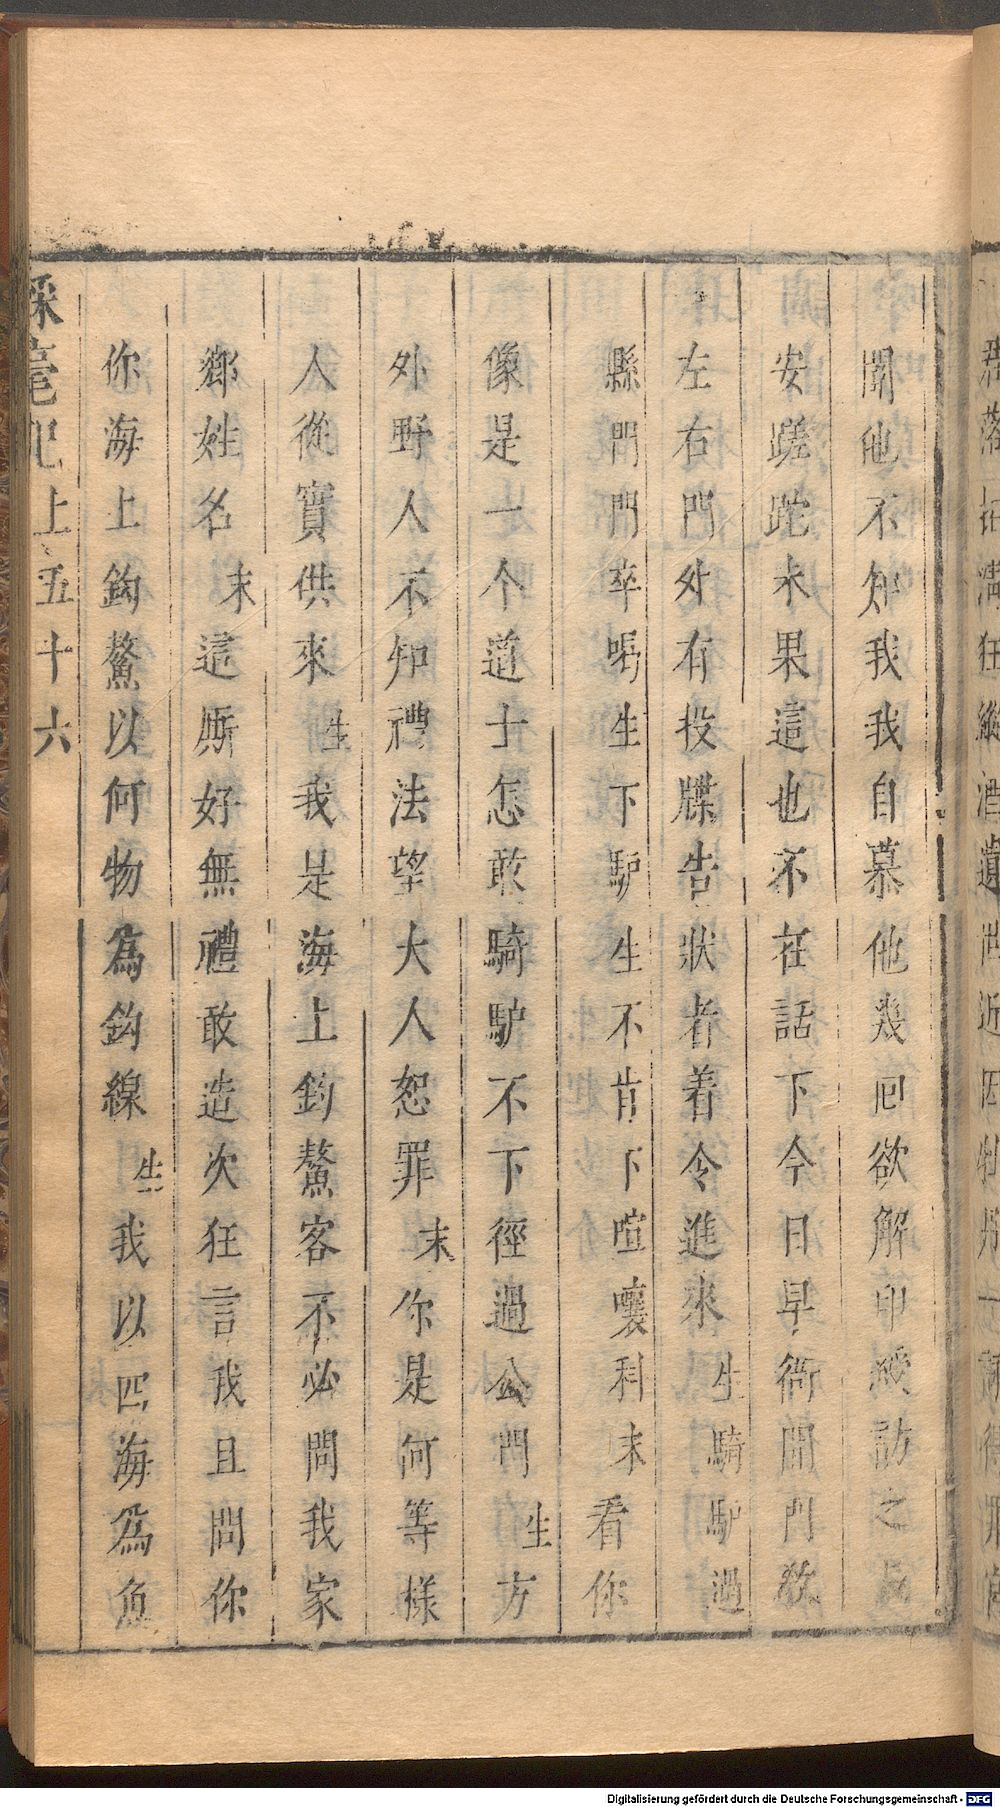 聞他不知我我自慕他幾回欲解印綬訪之
安蹉跎未果這也不在話下今日早衙開門放
左右門外有投牒告狀者着令進來生騎驢過
縣門門卒喝生下驢生不肯下喧嚷科末看你
像是一个道士怎敢騎驢不下徑過公門生方
外野人不知禮法望大人恕罪末你是何等樣
人從實供來生我是海上釣鰲客不必問我家
鄉姓名末這厮好無禮敢造次狂言我且問你
你海上鈎鰲以何物為鈎線生我以四海為魚
上五十六
Digitalisierung gefördert durch die Deutsche Forschungsgemeinschaft - DFG